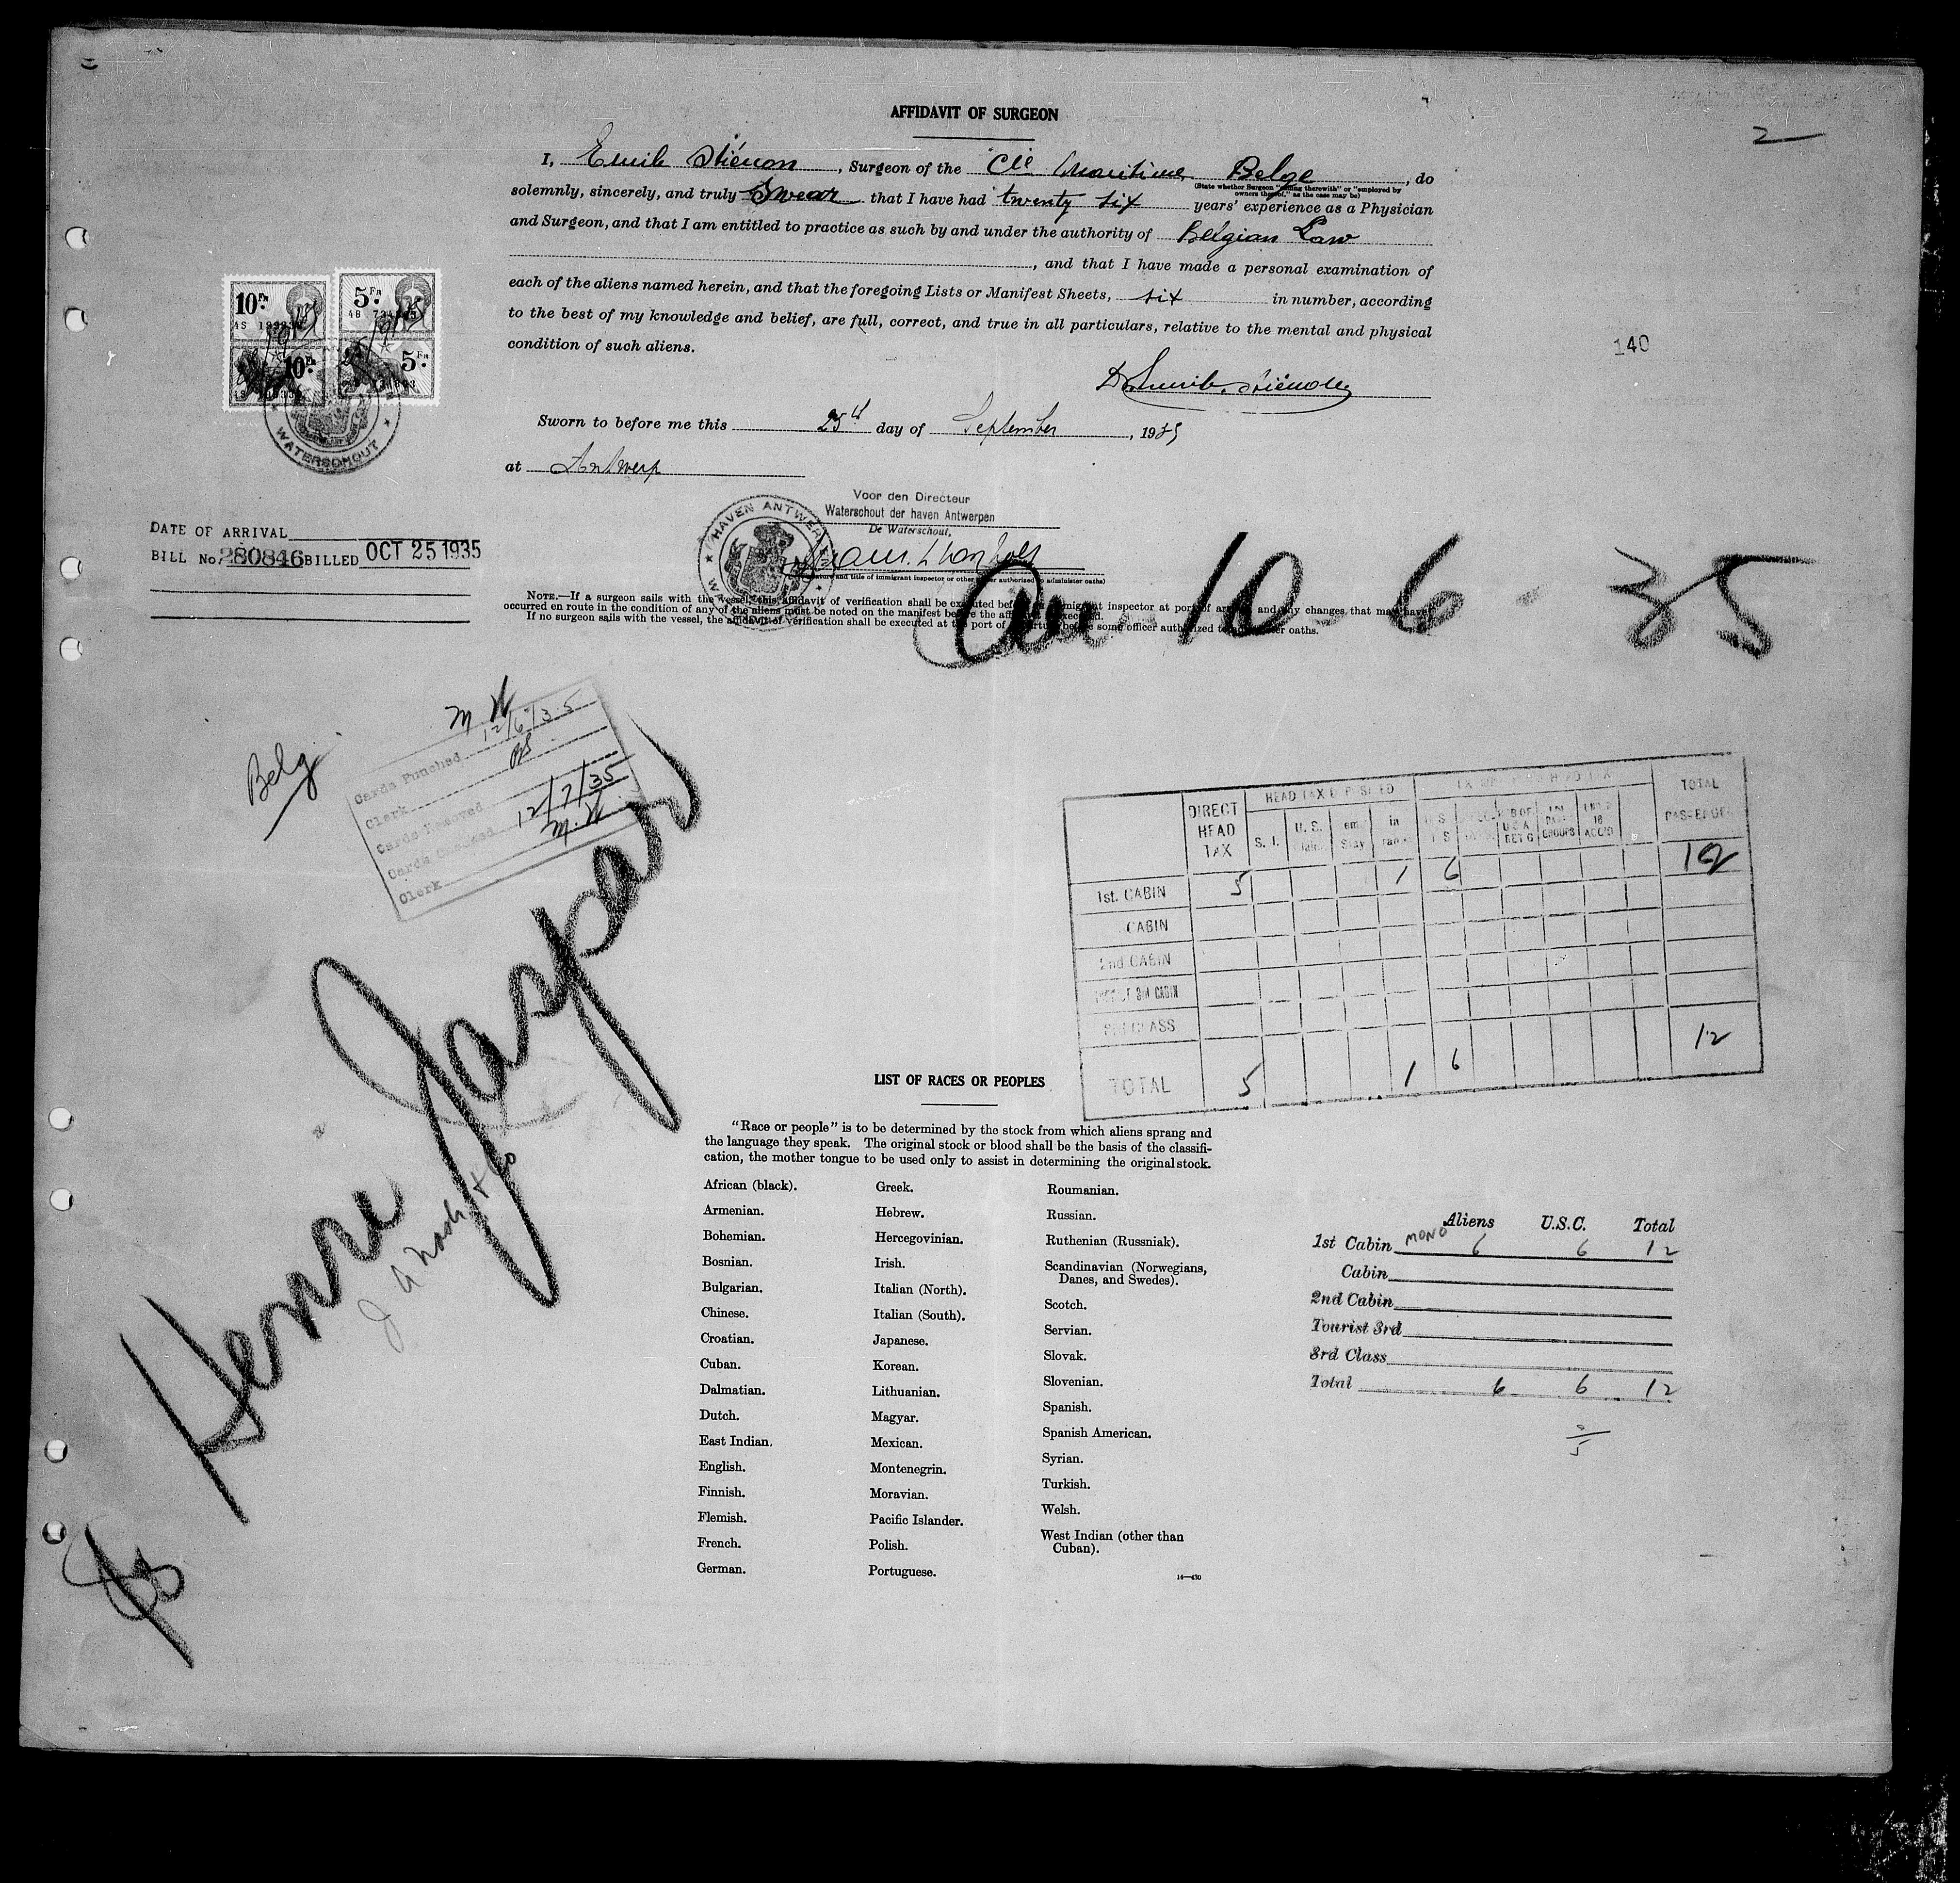 AFFIDAVIT OF SURGEON
2
I, Emile Stiénon, Surgeon of the Cie Maritime Belge, do
(State whether Surgeon "sailing therewith" or "employed by
owners thereof," as the case may be)
solemnly, sincerely, and truly Swear that I have had twenty six years' experience as a Physician
and Surgeon, and that I am entitled to practice as such by and under the authority of Belgian Law
, and that I have made a personal examination of
each of the aliens named herein, and that the foregoing Lists or Manifest Sheets, six in number, according
to the best of my knowledge and belief, are full, correct, and true in all particulars, relative to the mental and physical
condition of such aliens.
140
10 Fr 5 Fr
10 Fr 5 Fr
WATERSCHOUT
Dr Emile Stiénon
Sworn to before me this 25th day of September, 1935
at Antwerp
Voor den Directeur
Waterschout der haven Antwerpen
De Waterschout,
HAVEN ANTWERPEN
DATE OF ARRIVAL
BILL No. 280846 BILLED OCT 25 1935
(Signature and title of immigrant inspector or other officer authorized to administer oaths)
NOTE.—If a surgeon sails with the vessel, this affidavit of verification shall be executed before an immigrant inspector at port of arrival and any changes that may have
occurred en route in the condition of any of the aliens must be noted on the manifest before the affidavit is executed.
If no surgeon sails with the vessel, the affidavit of verification shall be executed at the port of departure before some officer authorized to administer oaths.
Arr 10-6-35
Belg
M W
Cards Punched 12/6/35
Clerk
Cards Removed
Cards Checked 12/7/35
Clerk M. W
Henri Jaspar
DIRECT HEAD TAX
S. I.
U. S.
TOTAL
1st. CABIN 5 1 6 12
CABIN
2nd CABIN
3rd CABIN
CLASS
TOTAL 5 1 6 12
LIST OF RACES OR PEOPLES
"Race or people" is to be determined by the stock from which aliens sprang and
the language they speak. The original stock or blood shall be the basis of the classifi-
cation, the mother tongue to be used only to assist in determining the original stock.
African (black).
Armenian.
Bohemian.
Bosnian.
Bulgarian.
Chinese.
Croatian.
Cuban.
Dalmatian.
Dutch.
East Indian.
English.
Finnish.
Flemish.
French.
German.
Greek.
Hebrew.
Hercegovinian.
Irish.
Italian (North).
Italian (South).
Japanese.
Korean.
Lithuanian.
Magyar.
Mexican.
Montenegrin.
Moravian.
Pacific Islander.
Polish.
Portuguese.
Roumanian.
Russian.
Ruthenian (Russniak).
Scandinavian (Norwegians,
Danes, and Swedes).
Scotch.
Servian.
Slovak.
Slovenian.
Spanish.
Spanish American.
Syrian.
Turkish.
Welsh.
West Indian (other than
Cuban).
14—430
Aliens U.S.C. Total
1st Cabin MONO 6 6 12
Cabin
2nd Cabin
Tourist 3rd
3rd Class
Total 6 6 12